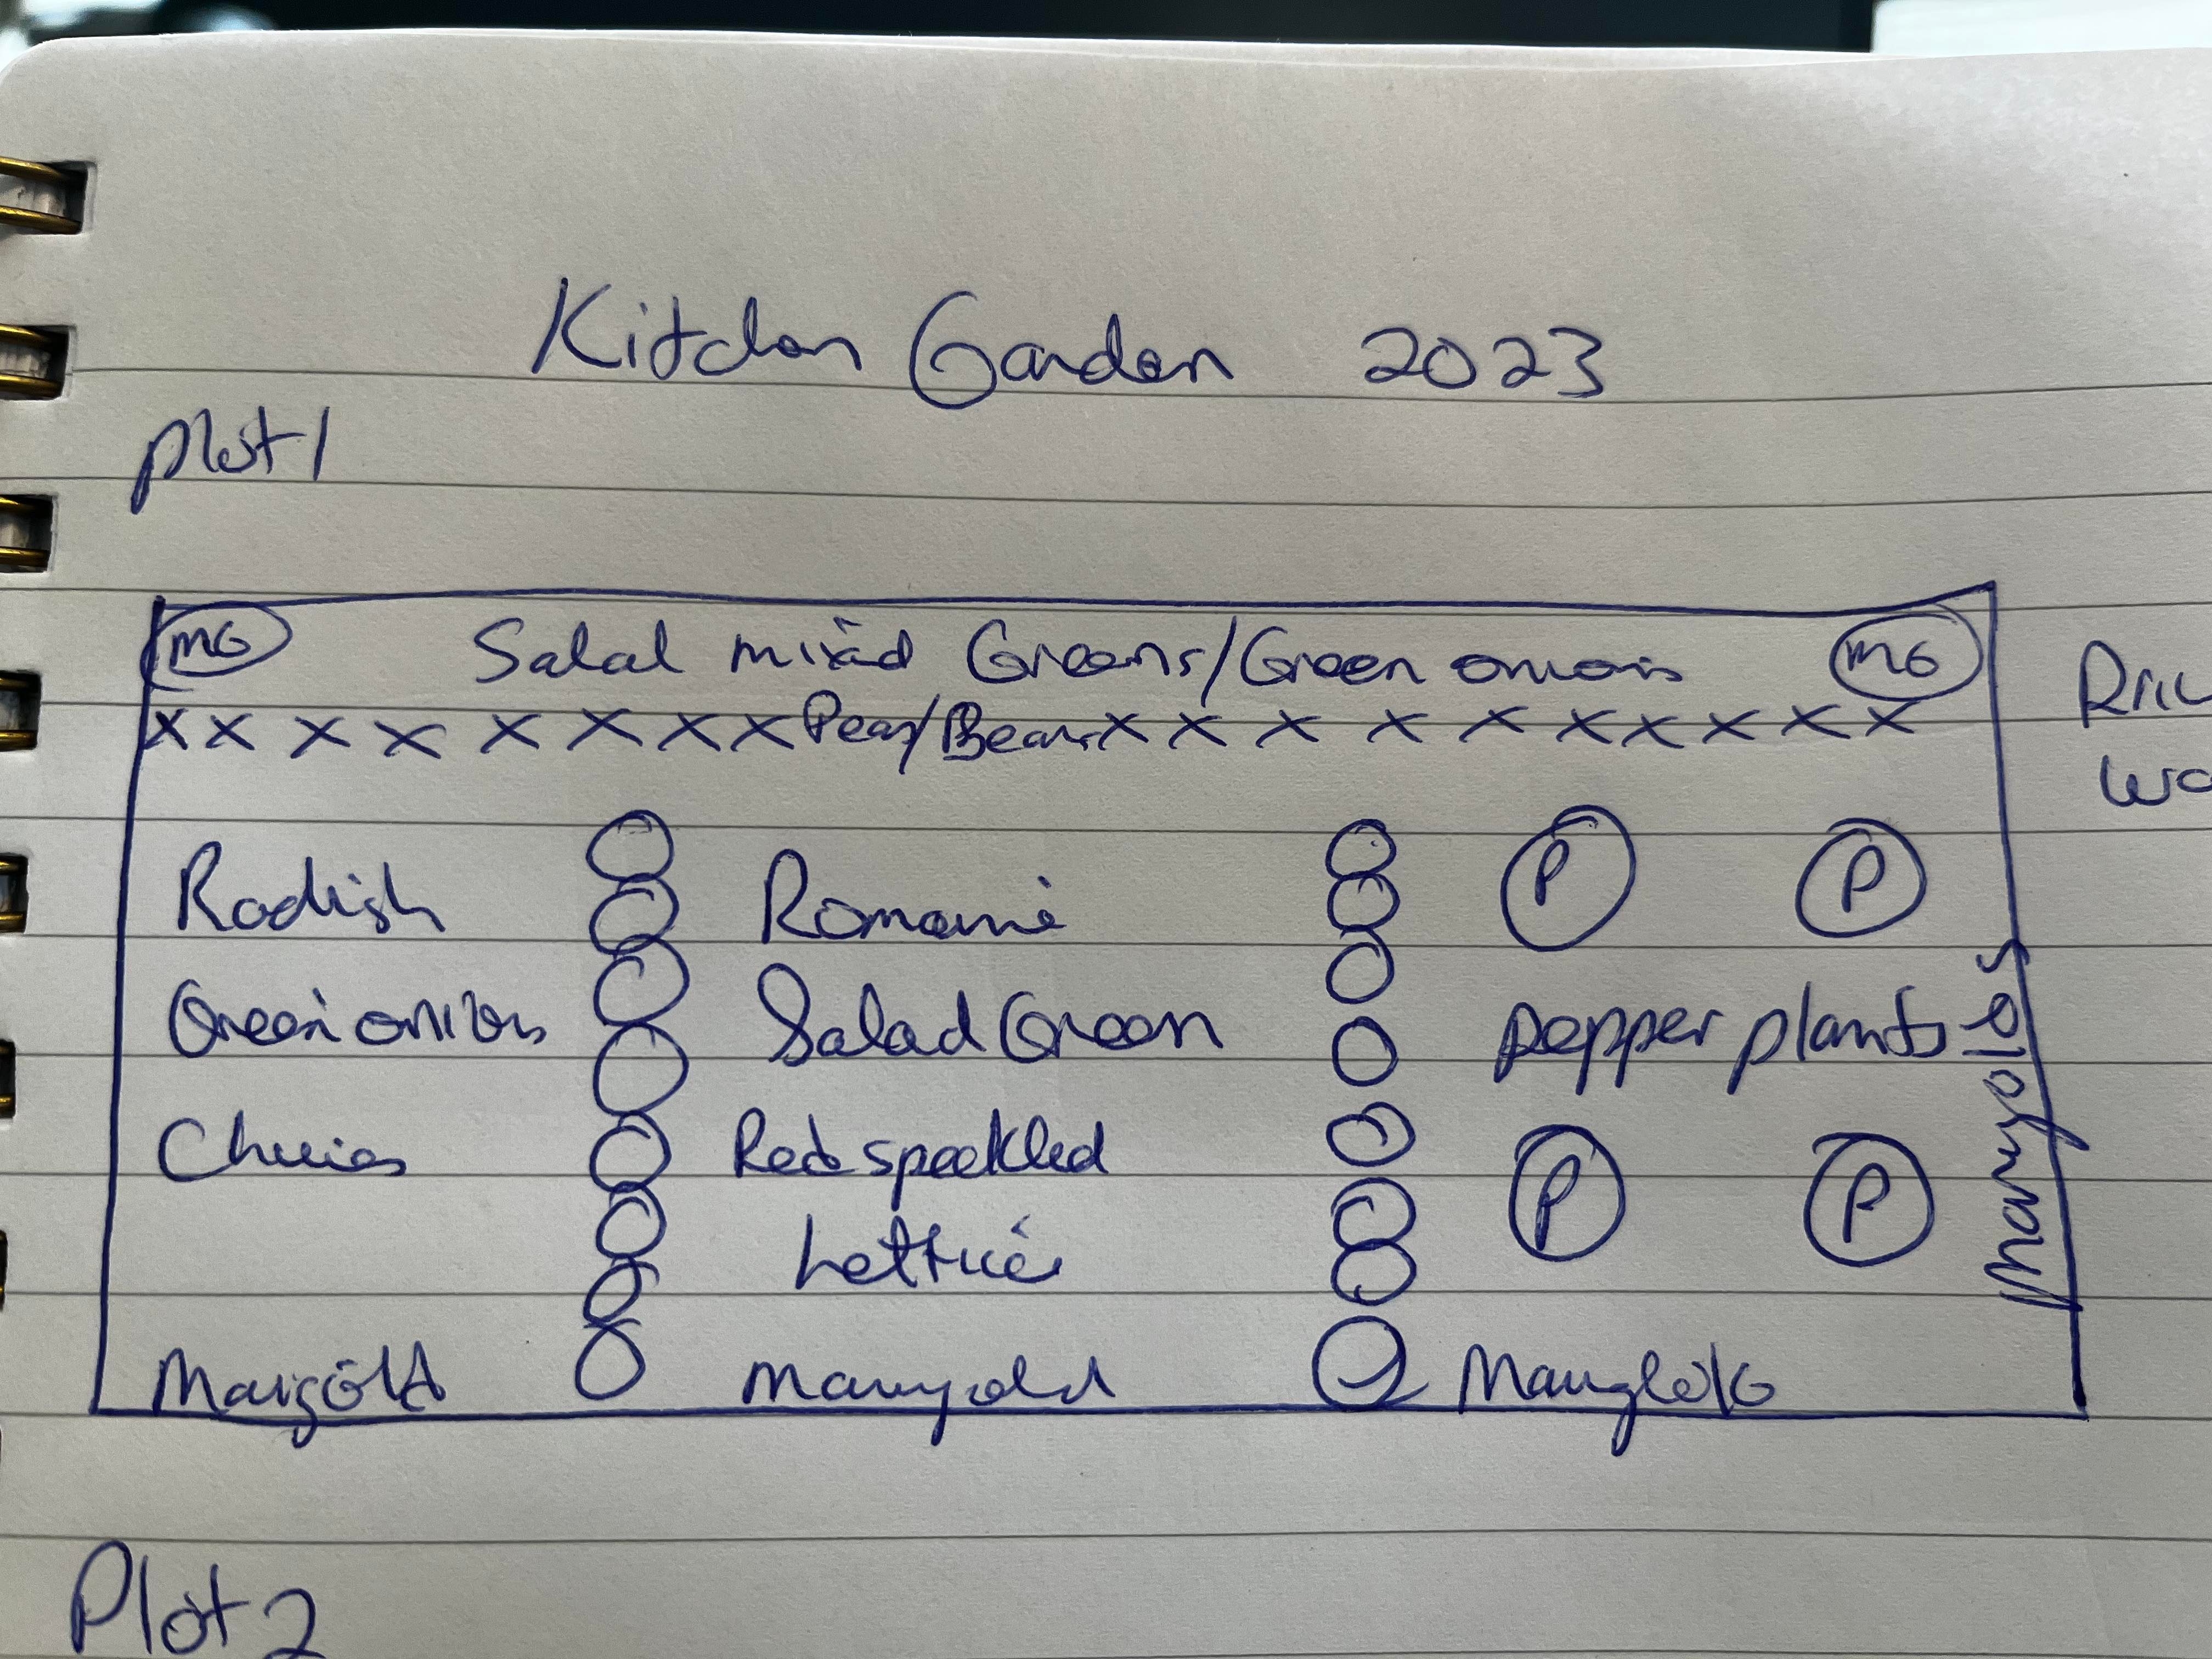 Kitchen Garden 2023
Plot 1
MG Salad mixed Greens/Green onions MG
X X X X X X X X Peas/Beans X X X X X X X X X X
Radish Romaine P P
Green onions Salad Green pepper plants
Chives Red speckled P P
Lettuce
Marigolds
Marigold Marigold Marigold
Plot 2